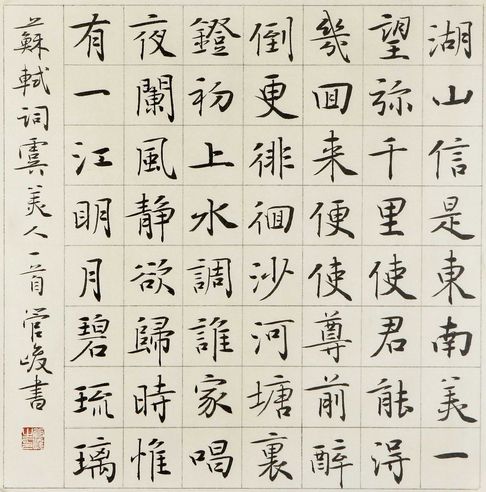 湖山信是東南美一
望弥千里使君能得
幾囬来便使尊前醉
倒更徘徊沙河塘裏
鐙初上水調誰家唱
夜闌風靜欲歸時惟
有一江眀月碧琉璃
蘇軾詞虞美人一首管峻書